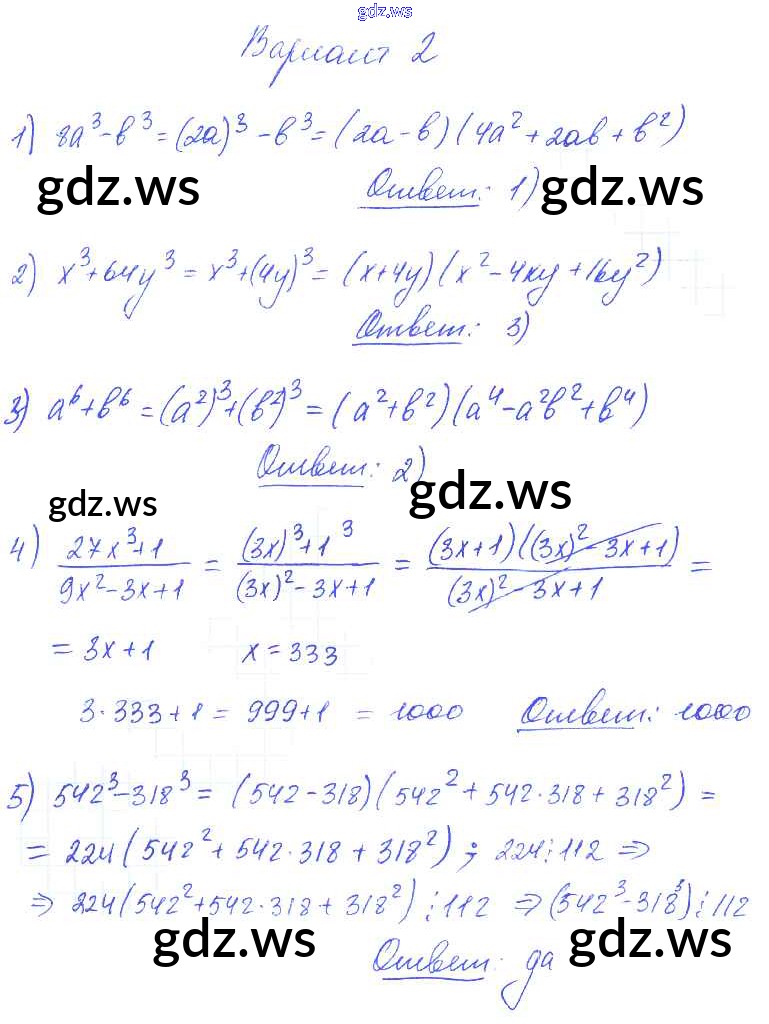 gdz.ws
Вариант 2
1) 8a³-b³=(2a)³-b³=(2a-b)(4a²+2ab+b²)
gdz.ws Ответ: 1) gdz.ws
2) x³+64y³=x³+(4y)³=(x+4y)(x²-4xy+16y²)
Ответ: 3)
3) a⁶+b⁶=(a²)³+(b²)³=(a²+b²)(a⁴-a²b²+b⁴)
Ответ: 2)
gdz.ws gdz.ws
4) (27x³+1)/(9x²-3x+1) = ((3x)³+1³)/((3x)²-3x+1) = ((3x+1)((3x)²-3x+1))/((3x)²-3x+1) =
= 3x+1 x=333
3·333+1 = 999+1 = 1000 Ответ: 1000
5) 542³-318³ = (542-318)(542²+542·318+318²) =
= 224(542²+542·318+318²); 224⋮112 ⇒
⇒ 224(542²+542·318+318²)⋮112 ⇒ (542³-318³)⋮112
gdz.ws Ответ: да gdz.ws